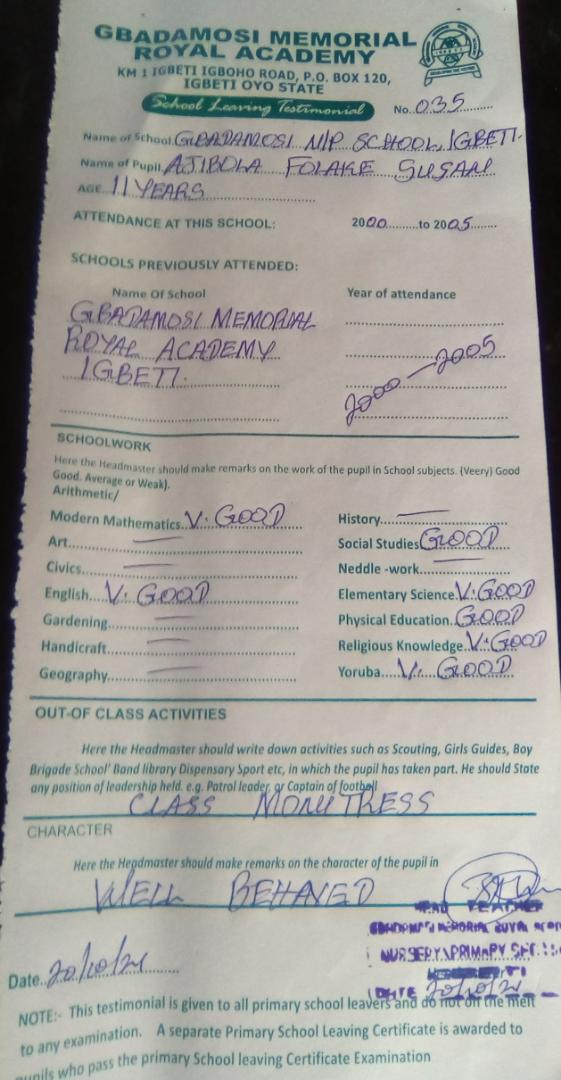 GBADAMOSI MEMORIAL
ROYAL ACADEMY
KM 1 IGBETI IGBOHO ROAD, P.O. BOX 120,
IGBETI OYO STATE
School Leaving Testimonial
No. 035
Name of School. GBADAMOSI N/P SCHOOL, IGBETI.
Name of Pupil. AJIBOLA FOLAKE SUSAN
AGE. 11 YEARS
ATTENDANCE AT THIS SCHOOL: 2000 to 2005
SCHOOLS PREVIOUSLY ATTENDED:
Name Of School Year of attendance
GBADAMOSI MEMORIAL
ROYAL ACADEMY
IGBETI.
2000 — 2005
SCHOOLWORK
Here the Headmaster should make remarks on the work of the pupil in School subjects. (Veery) Good
Good. Average or Weak).
Arithmetic/
Modern Mathematics. V. GOOD
History. —
Art. —
Social Studies GOOD
Civics. —
Neddle -work. —
English. V. GOOD
Elementary Science. V. GOOD
Gardening. —
Physical Education. GOOD
Handicraft. —
Religious Knowledge. V. GOOD
Geography. —
Yoruba. V. GOOD
OUT-OF CLASS ACTIVITIES
Here the Headmaster should write down activities such as Scouting, Girls Guides, Boy
Brigade School' Band library Dispensary Sport etc, in which the pupil has taken part. He should State
any position of leadership held. e.g. Patrol leader, or Captain of football
CLASS MONITRESS
CHARACTER
Here the Headmaster should make remarks on the character of the pupil in
WELL BEHAVED
HEAD TEACHER
GBADAMASI MEMORIAL ROYAL
NURSERY\PRIMARY
DATE 20/10/21
Date. 20/10/21
NOTE:- This testimonial is given to all primary school leavers and do not on the melt
to any examination. A separate Primary School Leaving Certificate is awarded to
pupils who pass the primary School leaving Certificate Examination